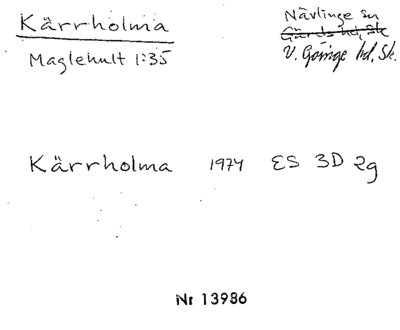 Kärrholma
Maglehult 1:35
Nävlinge sn
Gärds hd, Sk
V. Göinge hd, Sk.
Kärrholma 1974 ES 3D 2g
Nr 13986